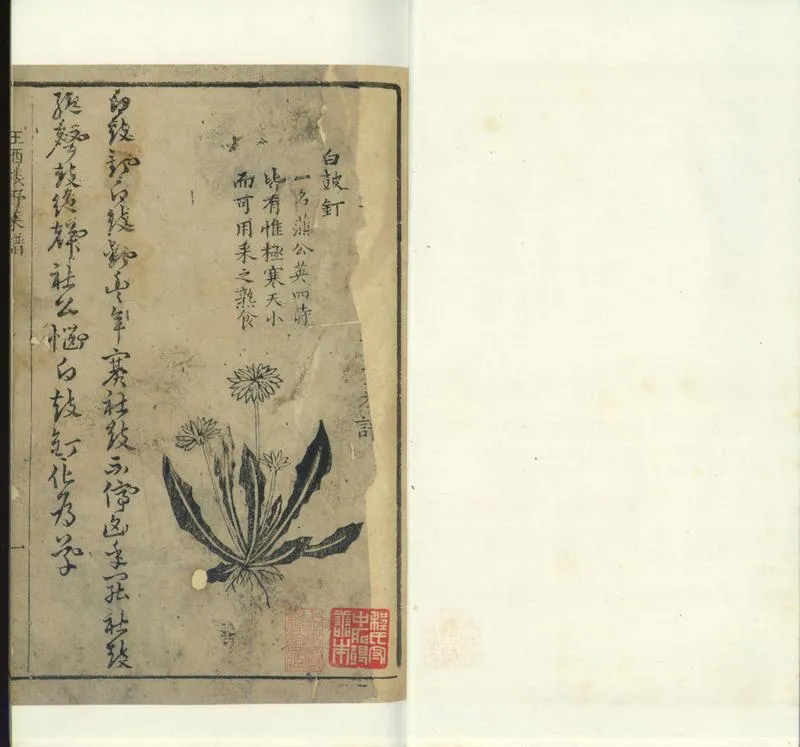 白皷釘
一名蒲公英四時
皆有惟極寒天小
而可用采之熟食
白鼓釘白鼓釘豐年賽社鼓不停凶年罷社鼓
絕聲鼓絕聲社公惱白鼓釘化為草
王西樓野菜譜
一